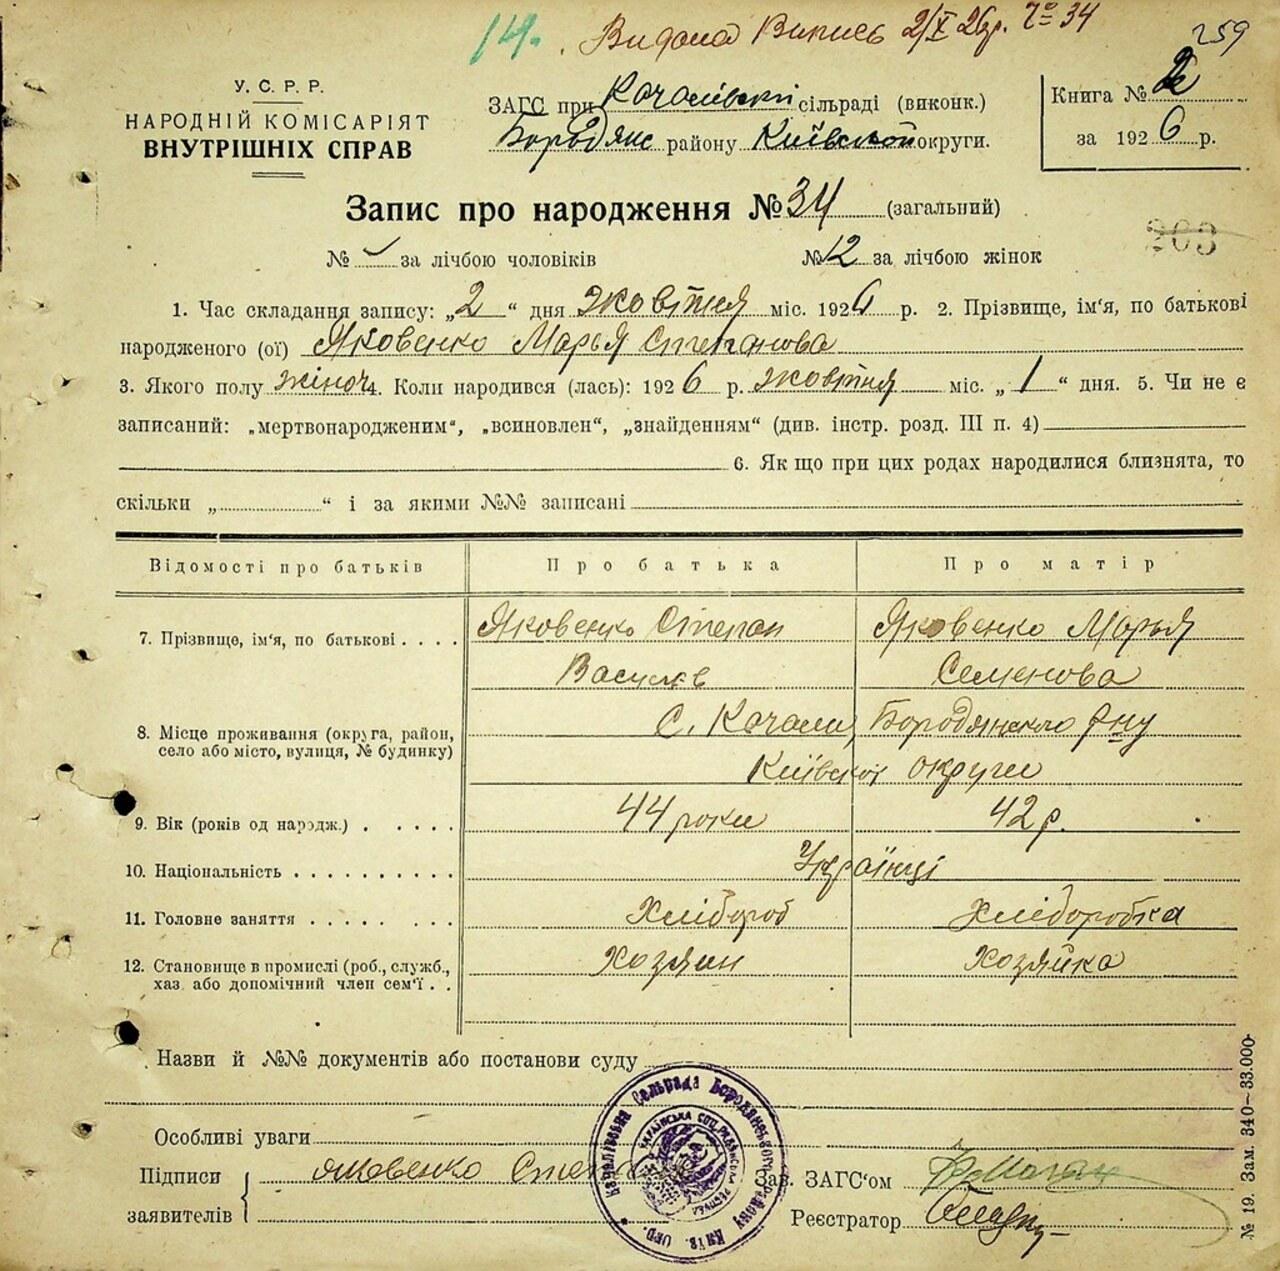 149. Видана Випись 2/X 26 р. № 34
259
У. С. Р. Р.
НАРОДНІЙ КОМІСАРІЯТ
ВНУТРІШНІХ СПРАВ
ЗАГС при Качалівскій сільраді (виконк.)
Бородянс району Київськой округи.
Книга № 2
за 1926 р.
Запис про народження № 34 (загальний)
203
№ за лічбою чоловіків № 12 за лічбою жінок
1. Час складання запису: „2“ дня жовтня міс. 1926 р. 2. Прізвище, ім‘я, по батькові
народженого (ої) Яковенко Марья Степанова
3. Якого полу жіноч 4. Коли народився (лась): 1926 р. жовтня міс. „1“ дня. 5. Чи не є
записаний: „мертвонародженим“, „всиновлен“, „знайденням“ (див. інстр. розд. III п. 4)
6. Як що при цих родах народилися близнята, то
скільки „ “ і за якими №№ записані
Відомості про батьків Про батька Про матір
7. Прізвище, ім‘я, по батькові . . . . Яковенко Степан Яковенко Марья
Василів Семенова
8. Місце проживання (округа, район, С. Качали, Бородянского р-ну
село або місто, вулиця, № будинку) Київської округи
9. Вік (років од народж.) . . . . . 44 роки 42 р.
10. Національність . . . . . . . . . . Українці
11. Головне заняття . . . . . . . Хлібороб Хліборобка
12. Становище в промислі (роб., служб., Хозяин Хозяйка
хаз. або допомічний член сем‘ї . .
Назви й №№ документів або постанови суду
Особливі уваги
Підписи
заявителів
Яковенко Степан
Зав. ЗАГС‘ом
Реєстратор
Качалівська Сельрада Бородянського району Київ. окр.
УКРАЇНСЬКА СОЦ. РАДЯНСЬКА РЕСПУБ.
№ 19. Зам. 340—33.000